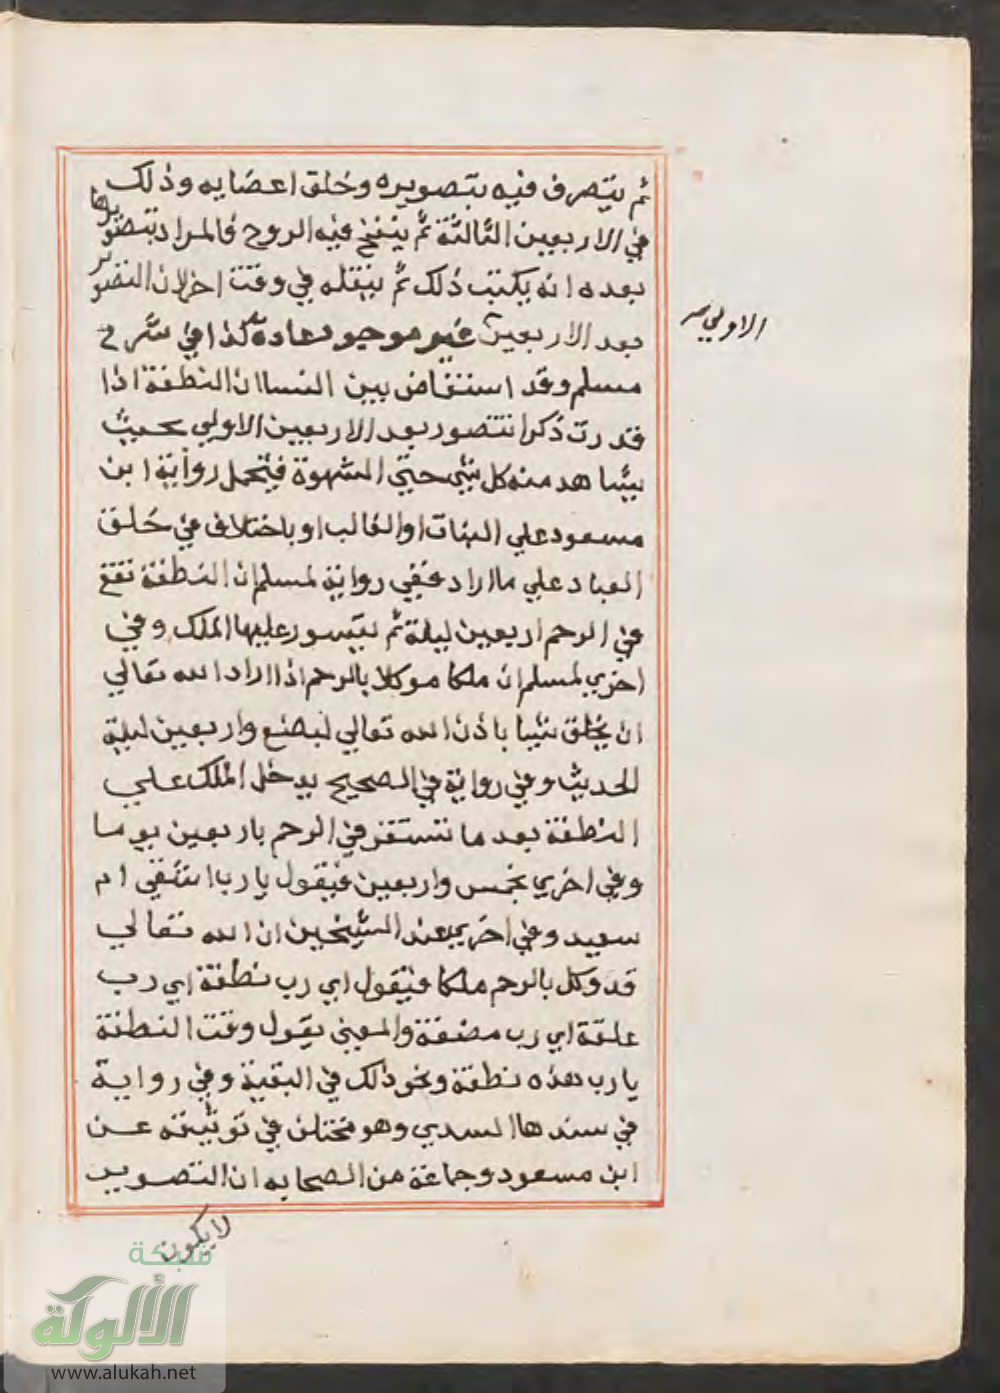 ثم يتصرف فيه بتصويره وخلق اعضايه وذلك
في الاربعين الثالثة ثم ينفخ فيه الروح فالمراد بتصويرها
بعده انه يكتب ذلك ثم ينقله في وقت اخر لان التصوير
بعد الاربعين غير موجود عادة كذا في شرح
الاولي
مسلم وقد استفاض بين النسا ان النطفة اذا
قدرت ذكرا تتصور بعد الاربعين الاولي بحيث
يشاهد منه كل شي حتي الشهوة فيحمل رواية ابن
مسعود علي البنات او الغالب او باختلاف في خلق
العباد علي ما اراد ففي رواية لمسلم ان النطفة تقع
في الرحم اربعين ليلة ثم يتسور عليها الملك وفي
اخري لمسلم ان ملكا موكلا بالرحم اذا اراد الله تعالي
ان يخلق شيا باذن الله تعالي لبضع واربعين ليلة
الحديث وفي رواية في الصحيح يدخل الملك علي
النطفة بعد ما تستقر في الرحم باربعين يوما
وفي اخري بخمس واربعين فيقول يارب اشقي ام
سعيد وفي اخري عند الشيخين ان الله تعالي
قد وكل بالرحم ملكا فيقول اي رب نطفة اي رب
علقة اي رب مضغة والمعني يقول وقت النطفة
يارب هذه نطفة ونحو ذلك في البقية وفي رواية
في سندها السدي وهو مختلف في توثيقه عن
ابن مسعود وجماعة من الصحابه ان التصوير
لايكون
شبكة
الألوكة
www.alukah.net